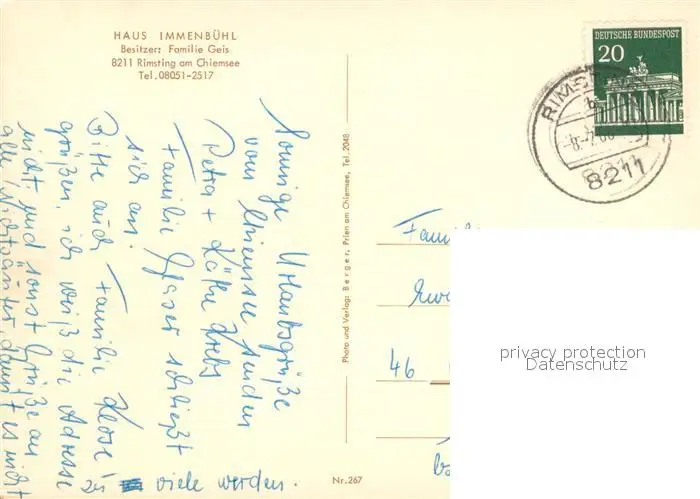 HAUS IMMENBÜHL
Besitzer: Familie Geis
8211 Rimsting am Chiemsee
Tel. 08051-2517
Sonnige Urlaubsgrüße
vom Chiemsee senden
Petra + Käthe Krebs
Familie Glaser schließt
sich an.
Bitte auch Familie Klose
grüßen, ich weiß die Adresse
nicht und sonst Grüße an
alle, damit es nicht
zu viele werden.
Photo und Verlag: Berger, Prien am Chiemsee, Tel. 2048
Nr. 267
DEUTSCHE BUNDESPOST
20
RIMS
8211
Fami
46
privacy protection
Datenschutz